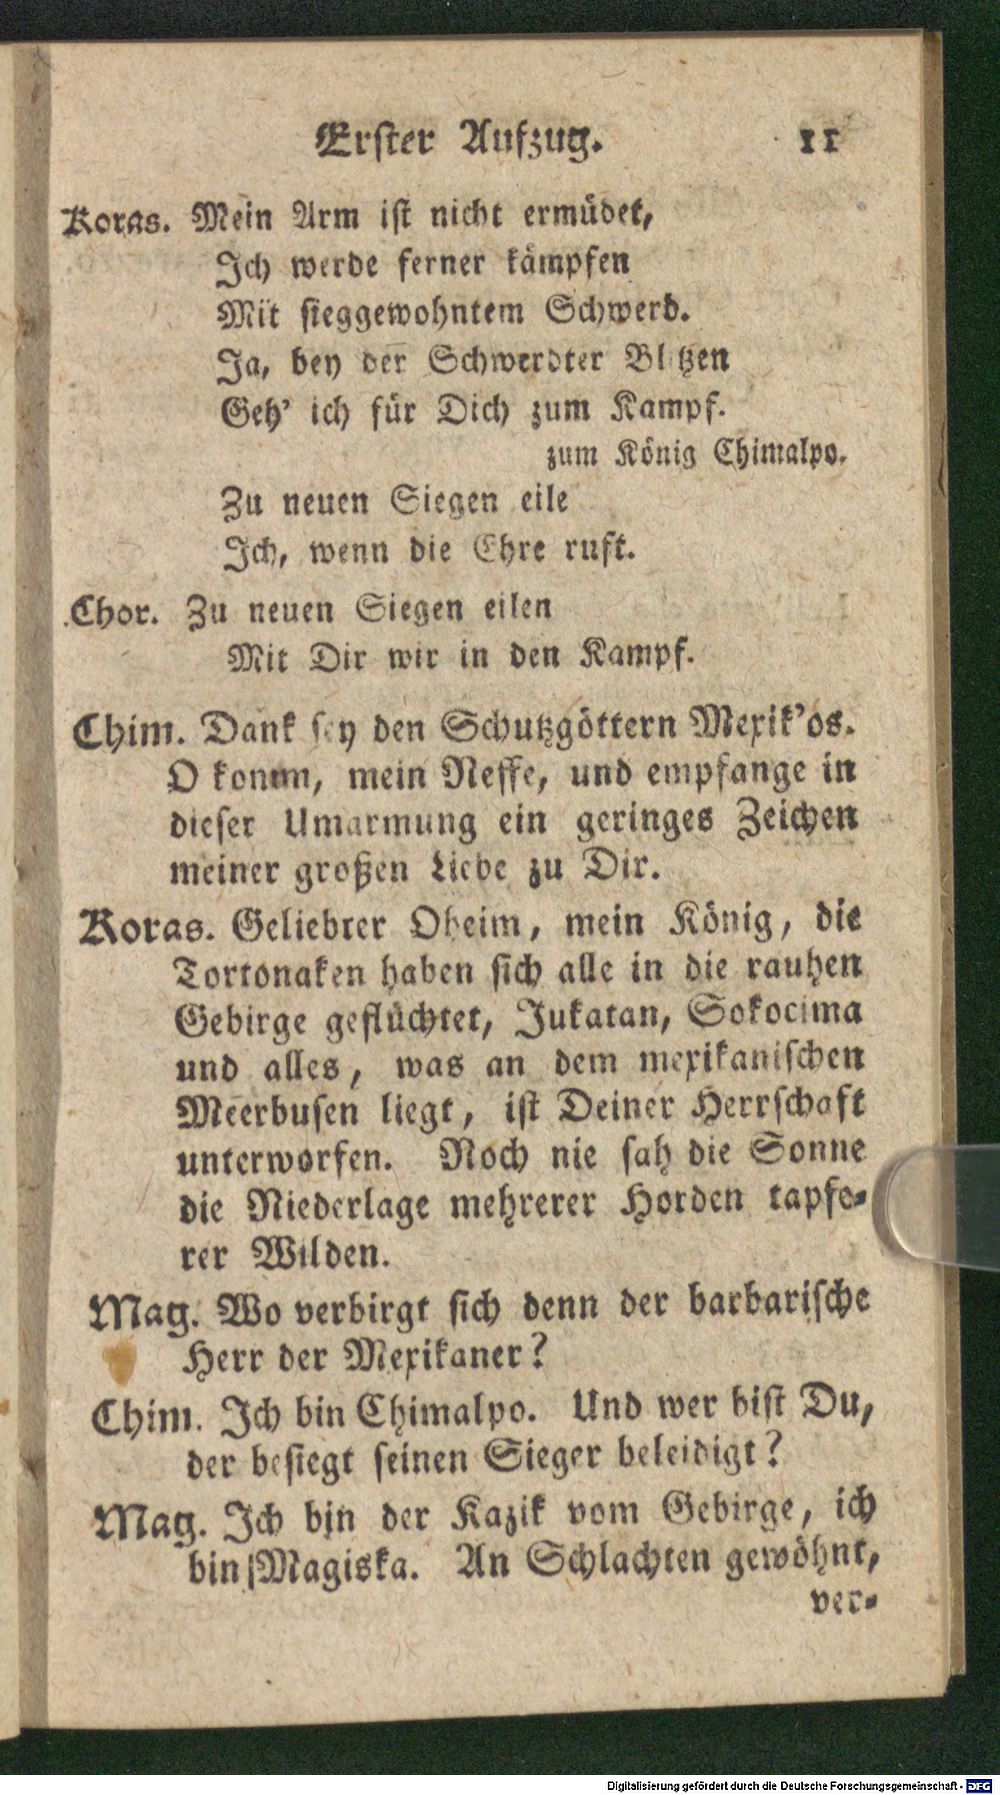 Erster Aufzug. 11
Koras. Mein Arm ist nicht ermüdet,
Ich werde ferner kämpfen
Mit sieggewohntem Schwerd.
Ja, bey der Schwerdter Blitzen
Geh' ich für Dich zum Kampf.
zum König Chimalpo.
Zu neuen Siegen eile
Ich, wenn die Ehre ruft.
Chor. Zu neuen Siegen eilen
Mit Dir wir in den Kampf.
Chim. Dank sey den Schutzgöttern Mexik'os.
O komm, mein Neffe, und empfange in
dieser Umarmung ein geringes Zeichen
meiner großen Liebe zu Dir.
Koras. Geliebter Oheim, mein König, die
Tortonaken haben sich alle in die rauhen
Gebirge geflüchtet, Jukatan, Sokocima
und alles, was an dem mexikanischen
Meerbusen liegt, ist Deiner Herrschaft
unterworfen. Noch nie sah die Sonne
die Niederlage mehrerer Horden tapfe-
rer Wilden.
Mag. Wo verbirgt sich denn der barbarische
Herr der Mexikaner?
Chim. Ich bin Chimalpo. Und wer bist Du,
der besiegt seinen Sieger beleidigt?
Mag. Ich bin der Kazik vom Gebirge, ich
bin Magiska. An Schlachten gewöhnt,
ver-
Digitalisierung gefördert durch die Deutsche Forschungsgemeinschaft - DFG